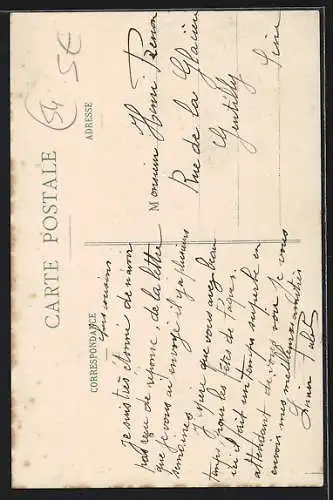 CARTE POSTALE
CORRESPONDANCE
ADRESSE
54
5€
Cousin
Je suis très étonné de n'avoir
pas reçu de réponse de la lettre
que je vous ai envoyé il y a plusieurs
semaines.
J'espère que vous avez beau
temps pour les fêtes de Pâques,
ici il fait un temps superbe en
attendant de vous voir je vous
envoie mes meilleures amitiés
Monsieur Henri
Rue de la Glacière
Gentilly
Seine